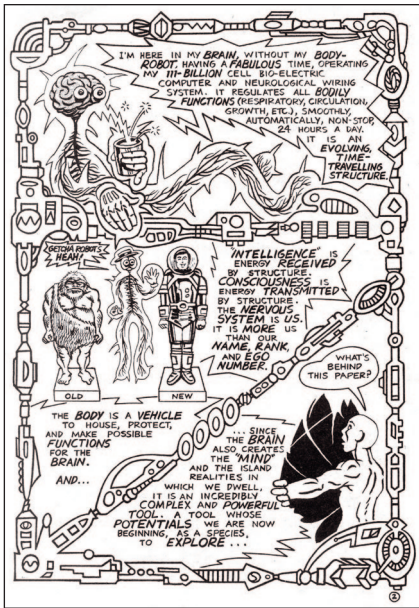 I'M HERE IN MY BRAIN, WITHOUT MY BODY-
ROBOT. HAVING A FABULOUS TIME, OPERATING
MY 111-BILLION CELL BIO-ELECTRIC
COMPUTER AND NEUROLOGICAL WIRING
SYSTEM. IT REGULATES ALL BODILY
FUNCTIONS (RESPIRATORY, CIRCULATION,
GROWTH, ETC.), SMOOTHLY,
AUTOMATICALLY, NON-STOP,
24 HOURS A DAY.
IT IS AN
EVOLVING,
TIME-
TRAVELLING
STRUCTURE.
GETCHA ROBOTS
HEAH!
OLD
NEW
"INTELLIGENCE" IS
ENERGY RECEIVED
BY STRUCTURE.
CONSCIOUSNESS IS
ENERGY TRANSMITTED
BY STRUCTURE.
THE NERVOUS
SYSTEM IS US.
IT IS MORE US
THAN OUR
NAME, RANK,
AND EGO
NUMBER.
THE BODY IS A VEHICLE
TO HOUSE, PROTECT,
AND MAKE POSSIBLE
FUNCTIONS
FOR THE
BRAIN.
AND...
WHAT'S
BEHIND
THIS PAPER?
... SINCE
THE BRAIN
ALSO CREATES
THE "MIND"
AND THE ISLAND
REALITIES IN
WHICH WE DWELL,
IT IS AN INCREDIBLY
COMPLEX AND POWERFUL
TOOL. A TOOL WHOSE
POTENTIALS WE ARE NOW
BEGINNING, AS A SPECIES,
TO EXPLORE ...